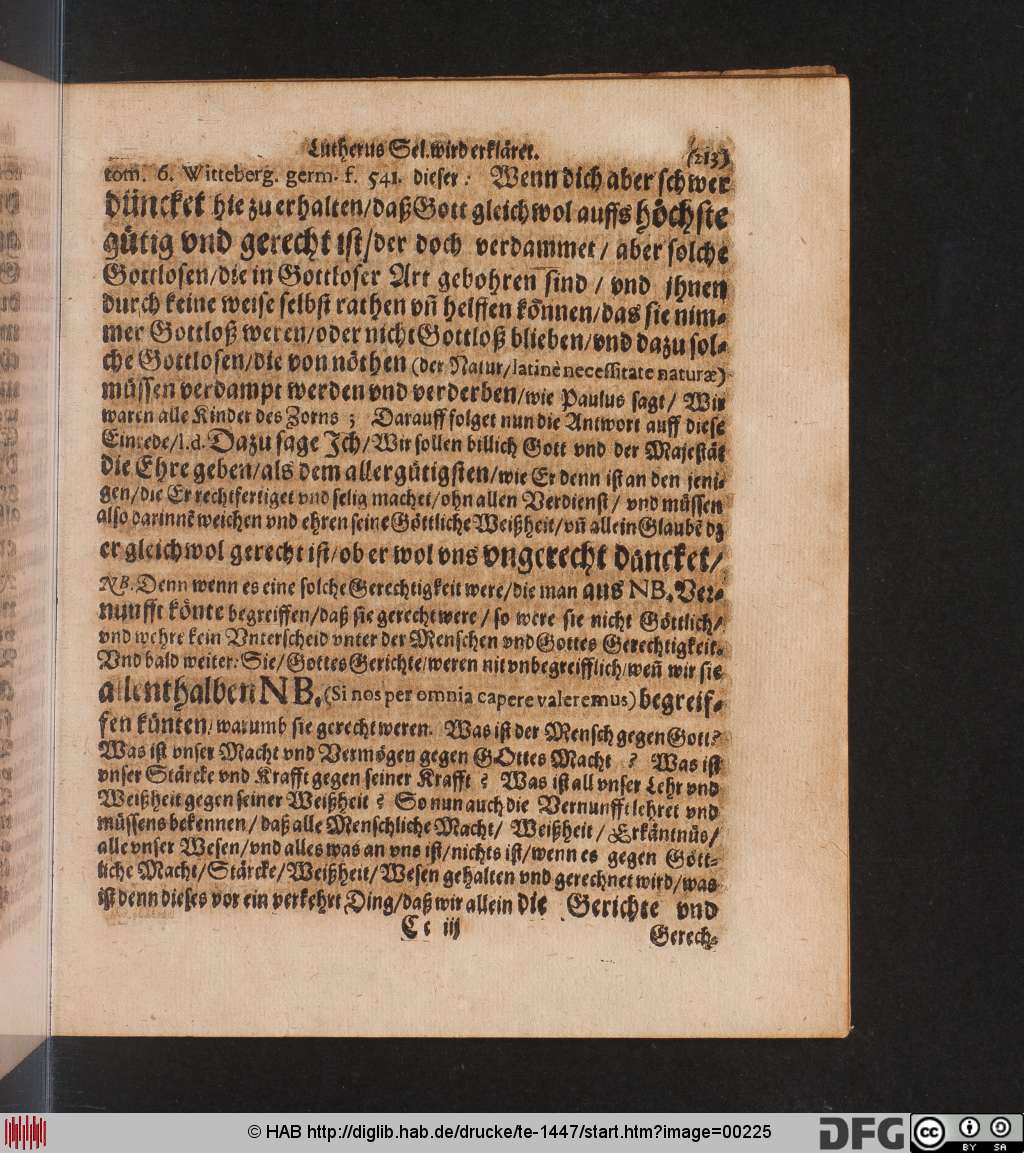 Lutherus Sel. wird erkläret. (213)
tom. 6. Witteberg. germ. f. 541. dieser: Wenn dich aber schwer
düncket hie zu erhalten/daß Gott gleichwol auffs höchste
gütig vnd gerecht ist/der doch verdammet/ aber solche
Gottlosen/die in Gottloser Art gebohren sind / vnd ihnen
durch keine weise selbst rathen vñ helffen können/das sie nim-
mer Gottloß weren/oder nicht Gottloß blieben/vnd dazu sol-
che Gottlosen/die von nöthen (der Natur/latinè necessitate naturæ)
müssen verdampt werden vnd verderben/wie Paulus sagt/ Wir
waren alle Kinder des Zorns ; Darauff folget nun die Antwort auff diese
Einrede/l.d. Dazu sage Ich/Wir sollen billich Gott vnd der Majestät
die Ehre geben/als dem allergütigsten/wie Er denn ist an den jeni-
gen/die Er rechtfertiget vnd selig machet/ohn allen Verdienst/ vnd müssen
also darinnē weichen vnd ehren seine Göttliche Weißheit/vñ allein Glaubē dz
er gleichwol gerecht ist/ob er wol vns vngerecht dancket/
NB. Denn wenn es eine solche Gerechtigkeit were/die man aus NB. Ver-
nunfft könte begreiffen/daß sie gerecht were/ so were sie nicht Göttlich/
vnd wehre kein Vnterscheid vnter der Menschen vnd Gottes Gerechtigkeit.
Vnd bald weiter: Sie/Gottes Gerichte/weren nit vnbegreifflich/weñ wir sie
allenthalben NB. (Si nos per omnia capere valeremus) begreif-
fen künten/warumb sie gerecht weren. Was ist der Mensch gegen Gott?
Was ist vnser Macht vnd Vermögen gegen GOttes Macht ? Was ist
vnser Stärcke vnd Krafft gegen seiner Krafft ? Was ist all vnser Lehr vnd
Weißheit gegen seiner Weißheit ? So nun auch die Vernunfft lehret vnd
müssens bekennen/daß alle Menschliche Macht/ Weißheit/ Erkäntnüs/
alle vnser Wesen/vnd alles was an vns ist/nichts ist/wenn es gegen Gött-
liche Macht/Stärcke/Weißheit/Wesen gehalten vnd gerechnet wird/was
ist denn dieses vor ein verkehrt Ding/daß wir allein die Gerichte vnd
Cc iij Gerech-
© HAB http://diglib.hab.de/drucke/te-1447/start.htm?image=00225
DFG cc BY SA